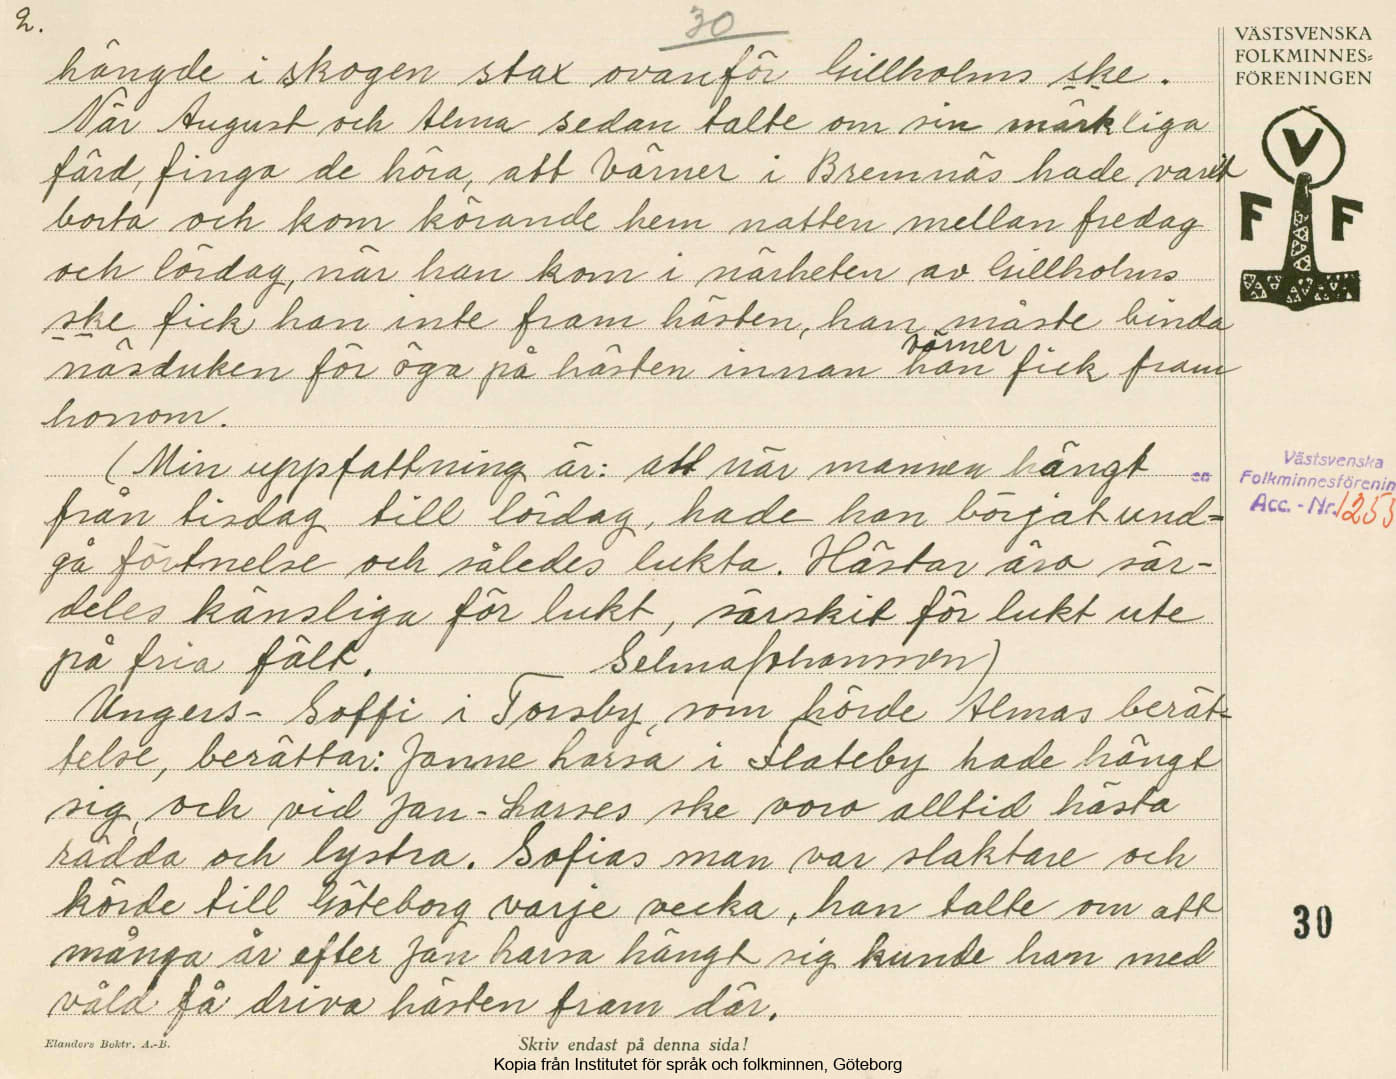 2.
30
hängde i skogen stax ovanför Gillholms ske.
När August och Alma sedan talte om sin märkliga
färd, finga de höra, att Värner i Bremnäs hade varit
borta och kom körande hem natten mellan fredag
och lördag, när han kom i närheten av Gillholms
ske fick han inte fram hästen, han måste binda
näsduken för öga på hästen innan han fick fram
värner
honom.
(Min uppfattning är: att när mannen hängt
från tisdag till lördag, hade han börjat und=
gå förtnelse och således lukta. Hästar äro sär-
deles känsliga för lukt, särskit för lukt ute
på fria fält. Selma Johannson)
Ungers- Soffi i Torsby, som hörde Almas berät-
telse, berättar: Janne Larsa i Flateby hade hängt
sig, och vid Jan-Larses ske voro alltid hästa
rädda och lystra. Sofias man var slaktare och
körde till Göteborg varje vecka, han talte om att
många år efter Jan Larsa hängt sig kunde han med
våld få driva hästen fram där.
VÄSTSVENSKA
FOLKMINNES=
FÖRENINGEN
V
F F
Västsvenska
Folkminnesförenin
Acc. - Nr. 1253
30
Elanders Boktr. A.-B.
Skriv endast på denna sida!
Kopia från Institutet för språk och folkminnen, Göteborg